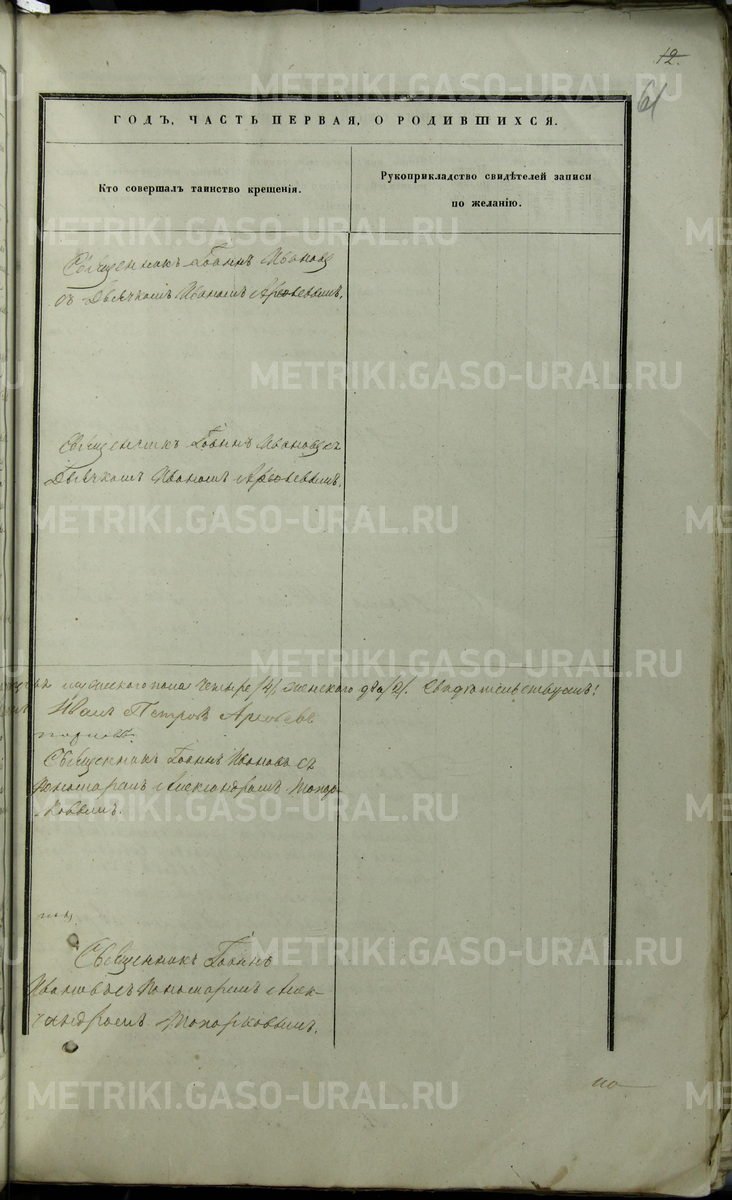 12.
61
ГОДЪ, ЧАСТЬ ПЕРВАЯ, О РОДИВШИХСЯ.
Кто совершалъ таинство крещенія.
Рукоприкладство свидѣтелей записи
по желанію.
Священникъ Іоаннъ Ивановъ
съ Дьячкомъ Иваномъ Арефьевымъ.
Священникъ Іоаннъ Ивановъ съ
Дьячкомъ Иваномъ Арефьевымъ.
мужескаго пола четыре /4/ женскаго два /2/. Свидѣтельствуемъ:
Иванъ Петровъ
Священникъ Іоаннъ Ивановъ съ
Пономаремъ Александромъ Топор-
ковымъ.
Священникъ Іоаннъ
Ивановъ съ Пономаремъ Алек-
сандромъ Топорковымъ.
по
METRIKI.GASO-URAL.RU
METRIKI.GASO-URAL.RU
METRIKI.GASO-URAL.RU
METRIKI.GASO-URAL.RU
METRIKI.GASO-URAL.RU
METRIKI.GASO-URAL.RU
METRIKI.GASO-URAL.RU
METRIKI.GASO-URAL.RU